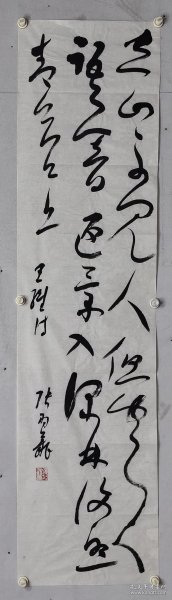 空山不见人但闻人
语音返景入深林复照
青苔上 王维诗